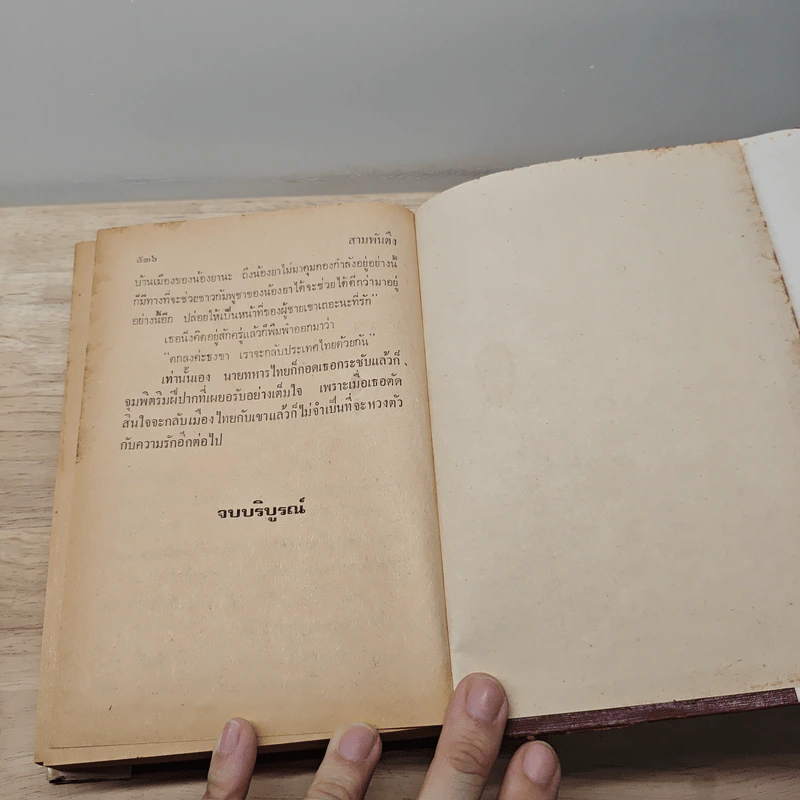 ๕๓๖
สามพันดึง
บ้านเมืองของน้องยานะ ถึงน้องยาไม่มาคุมกองกำลังอยู่อย่างนี้
ก็มีทางที่จะช่วยชาวกัมพูชาของน้องยาได้จะช่วยได้ดีกว่ามาอยู่
อย่างนี้อีก ปล่อยให้เป็นหน้าที่ของผู้ชายเขาเถอะนะที่รัก”
เธอนิ่งคิดอยู่สักครู่แล้วก็พึมพำออกมาว่า
“ตกลงค่ะธงชา เราจะกลับประเทศไทยด้วยกัน”
เท่านั้นเอง นายทหารไทยก็กอดเธอกระชับแล้วก็
จุมพิตริมฝีปากที่เผยอรับอย่างเต็มใจ เพราะเมื่อเธอตัด
สินใจจะกลับเมืองไทยกับเขาแล้วก็ไม่จำเป็นที่จะหวงตัว
กับความรักอีกต่อไป
จบบริบูรณ์